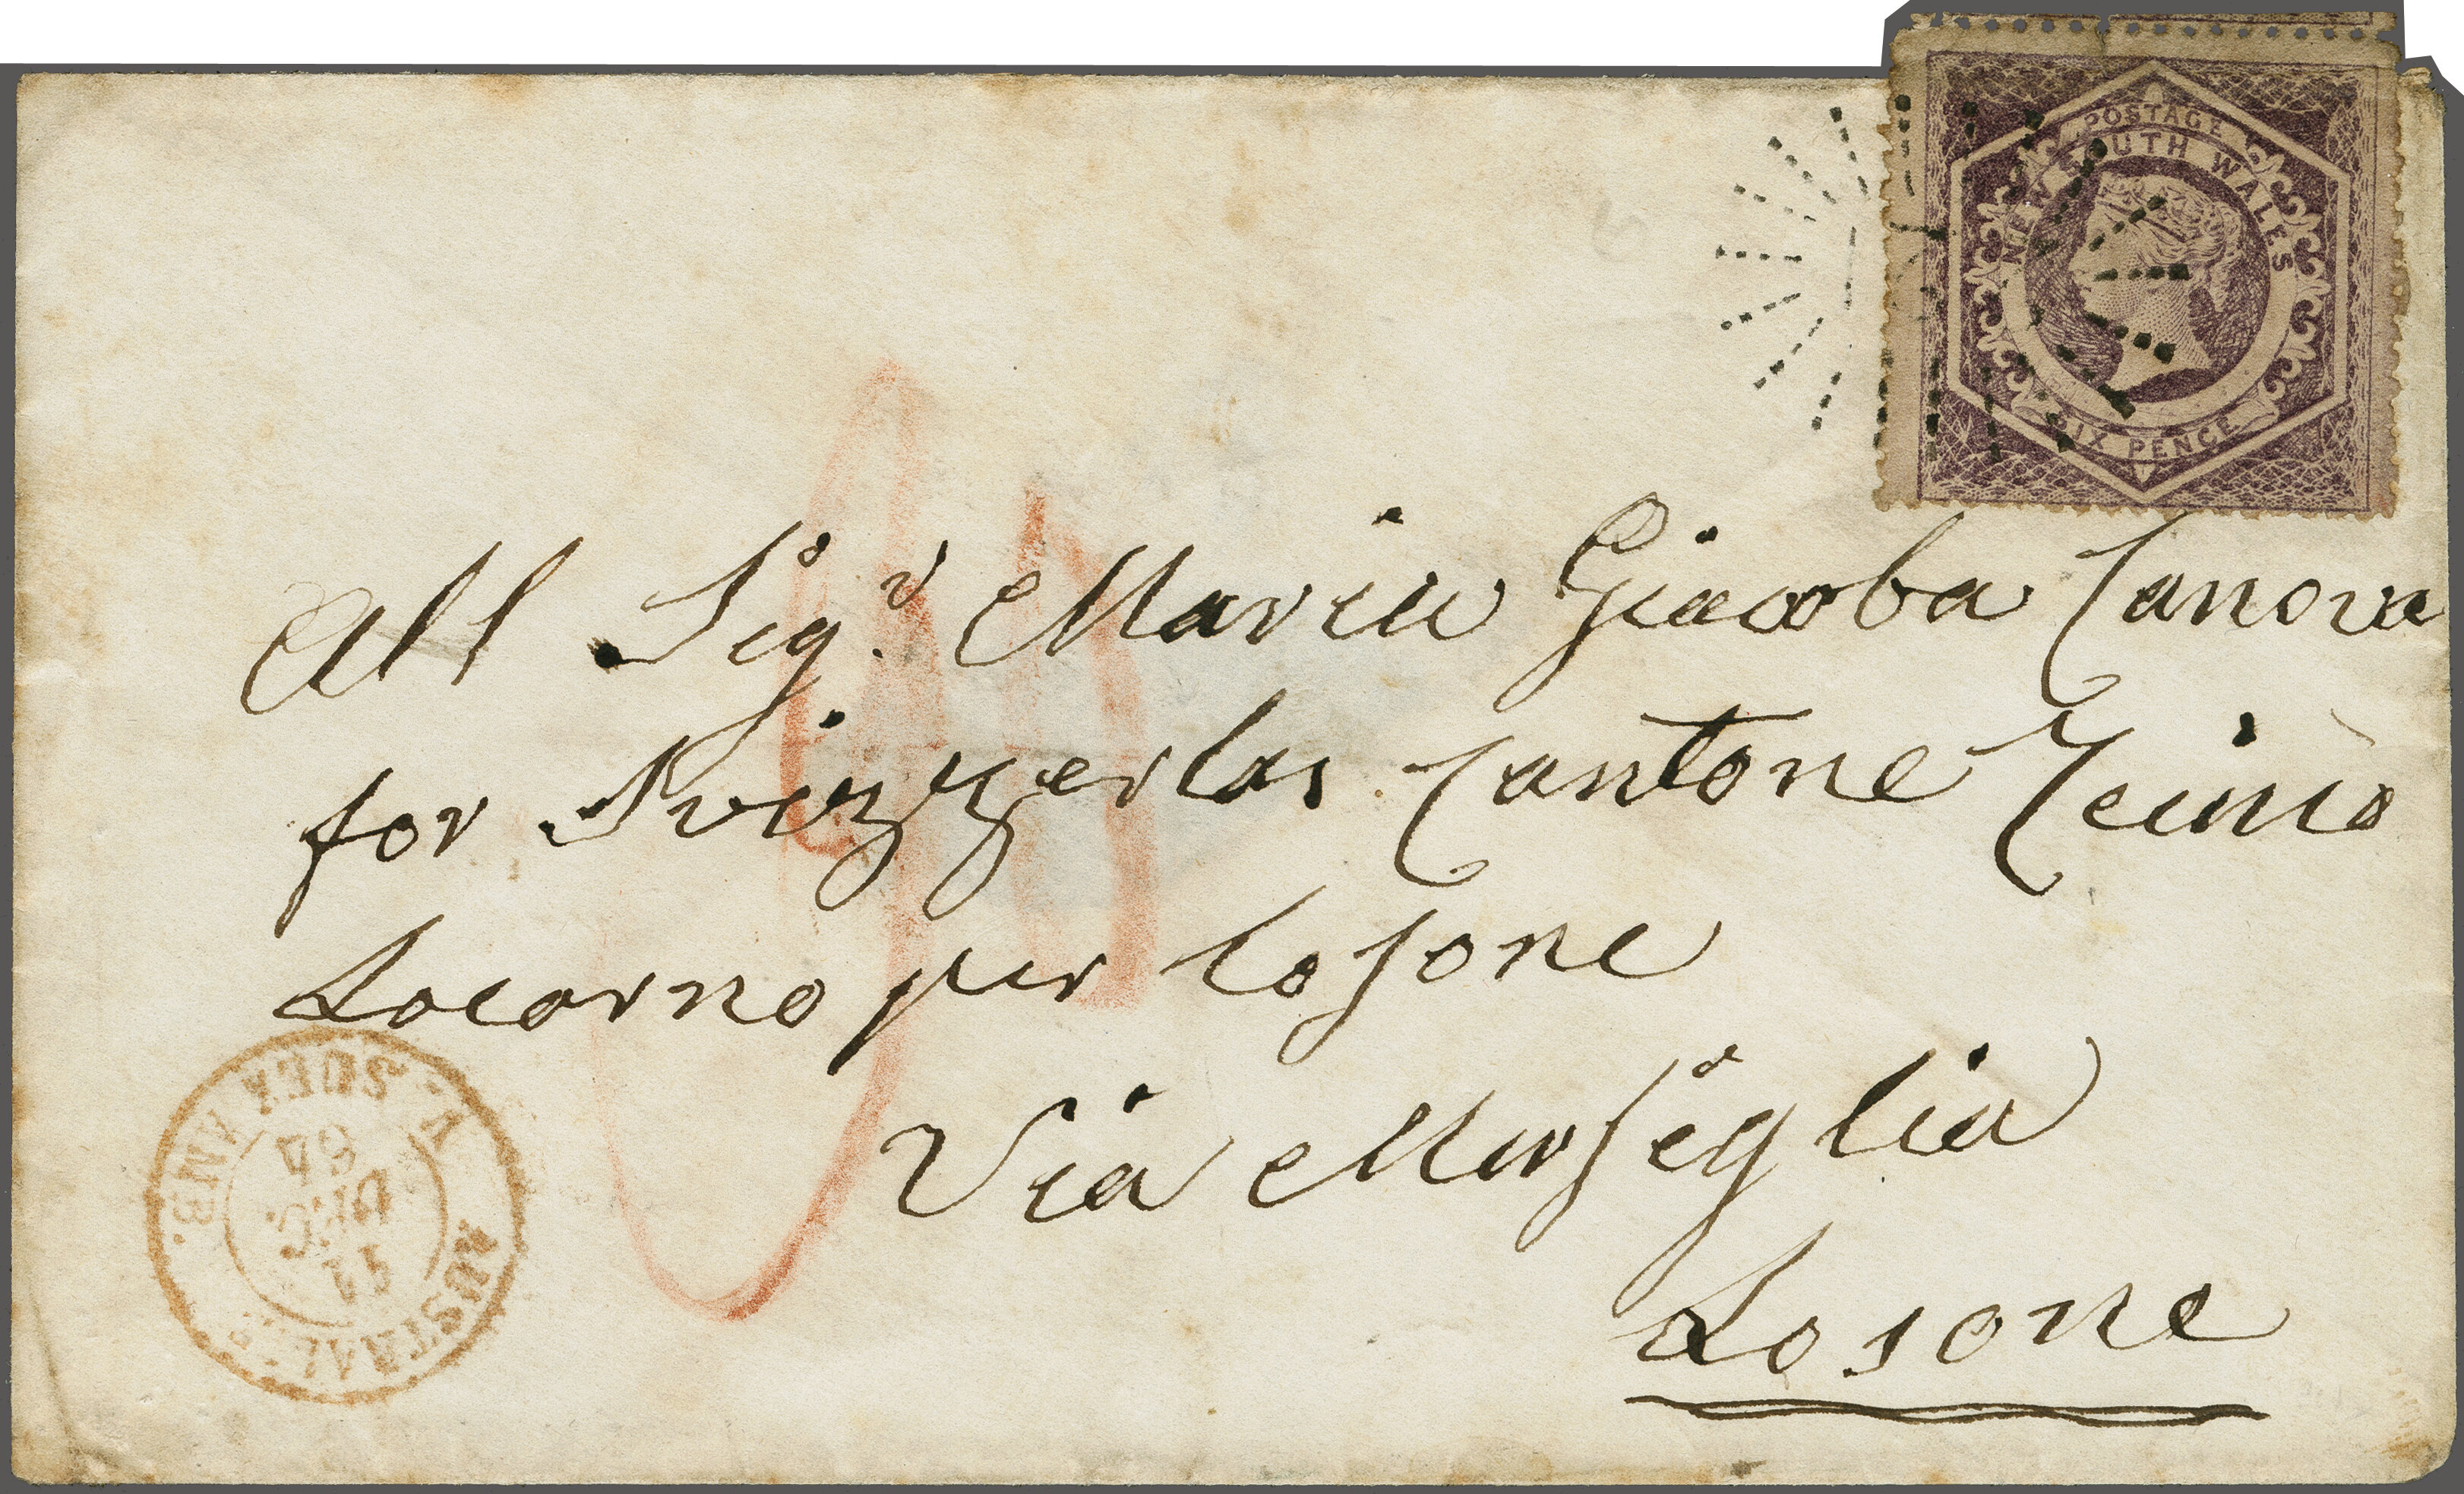 POSTAGE
NEW SOUTH WALES
SIX PENCE
All Sigʳ Maria Giacoba Canova
for Svizzerlar Cantone Ticino
Locarno per Losone
Via Marsiglia
Losone
AUSTRAL
11
DEC.
V. SUEZ AMB.